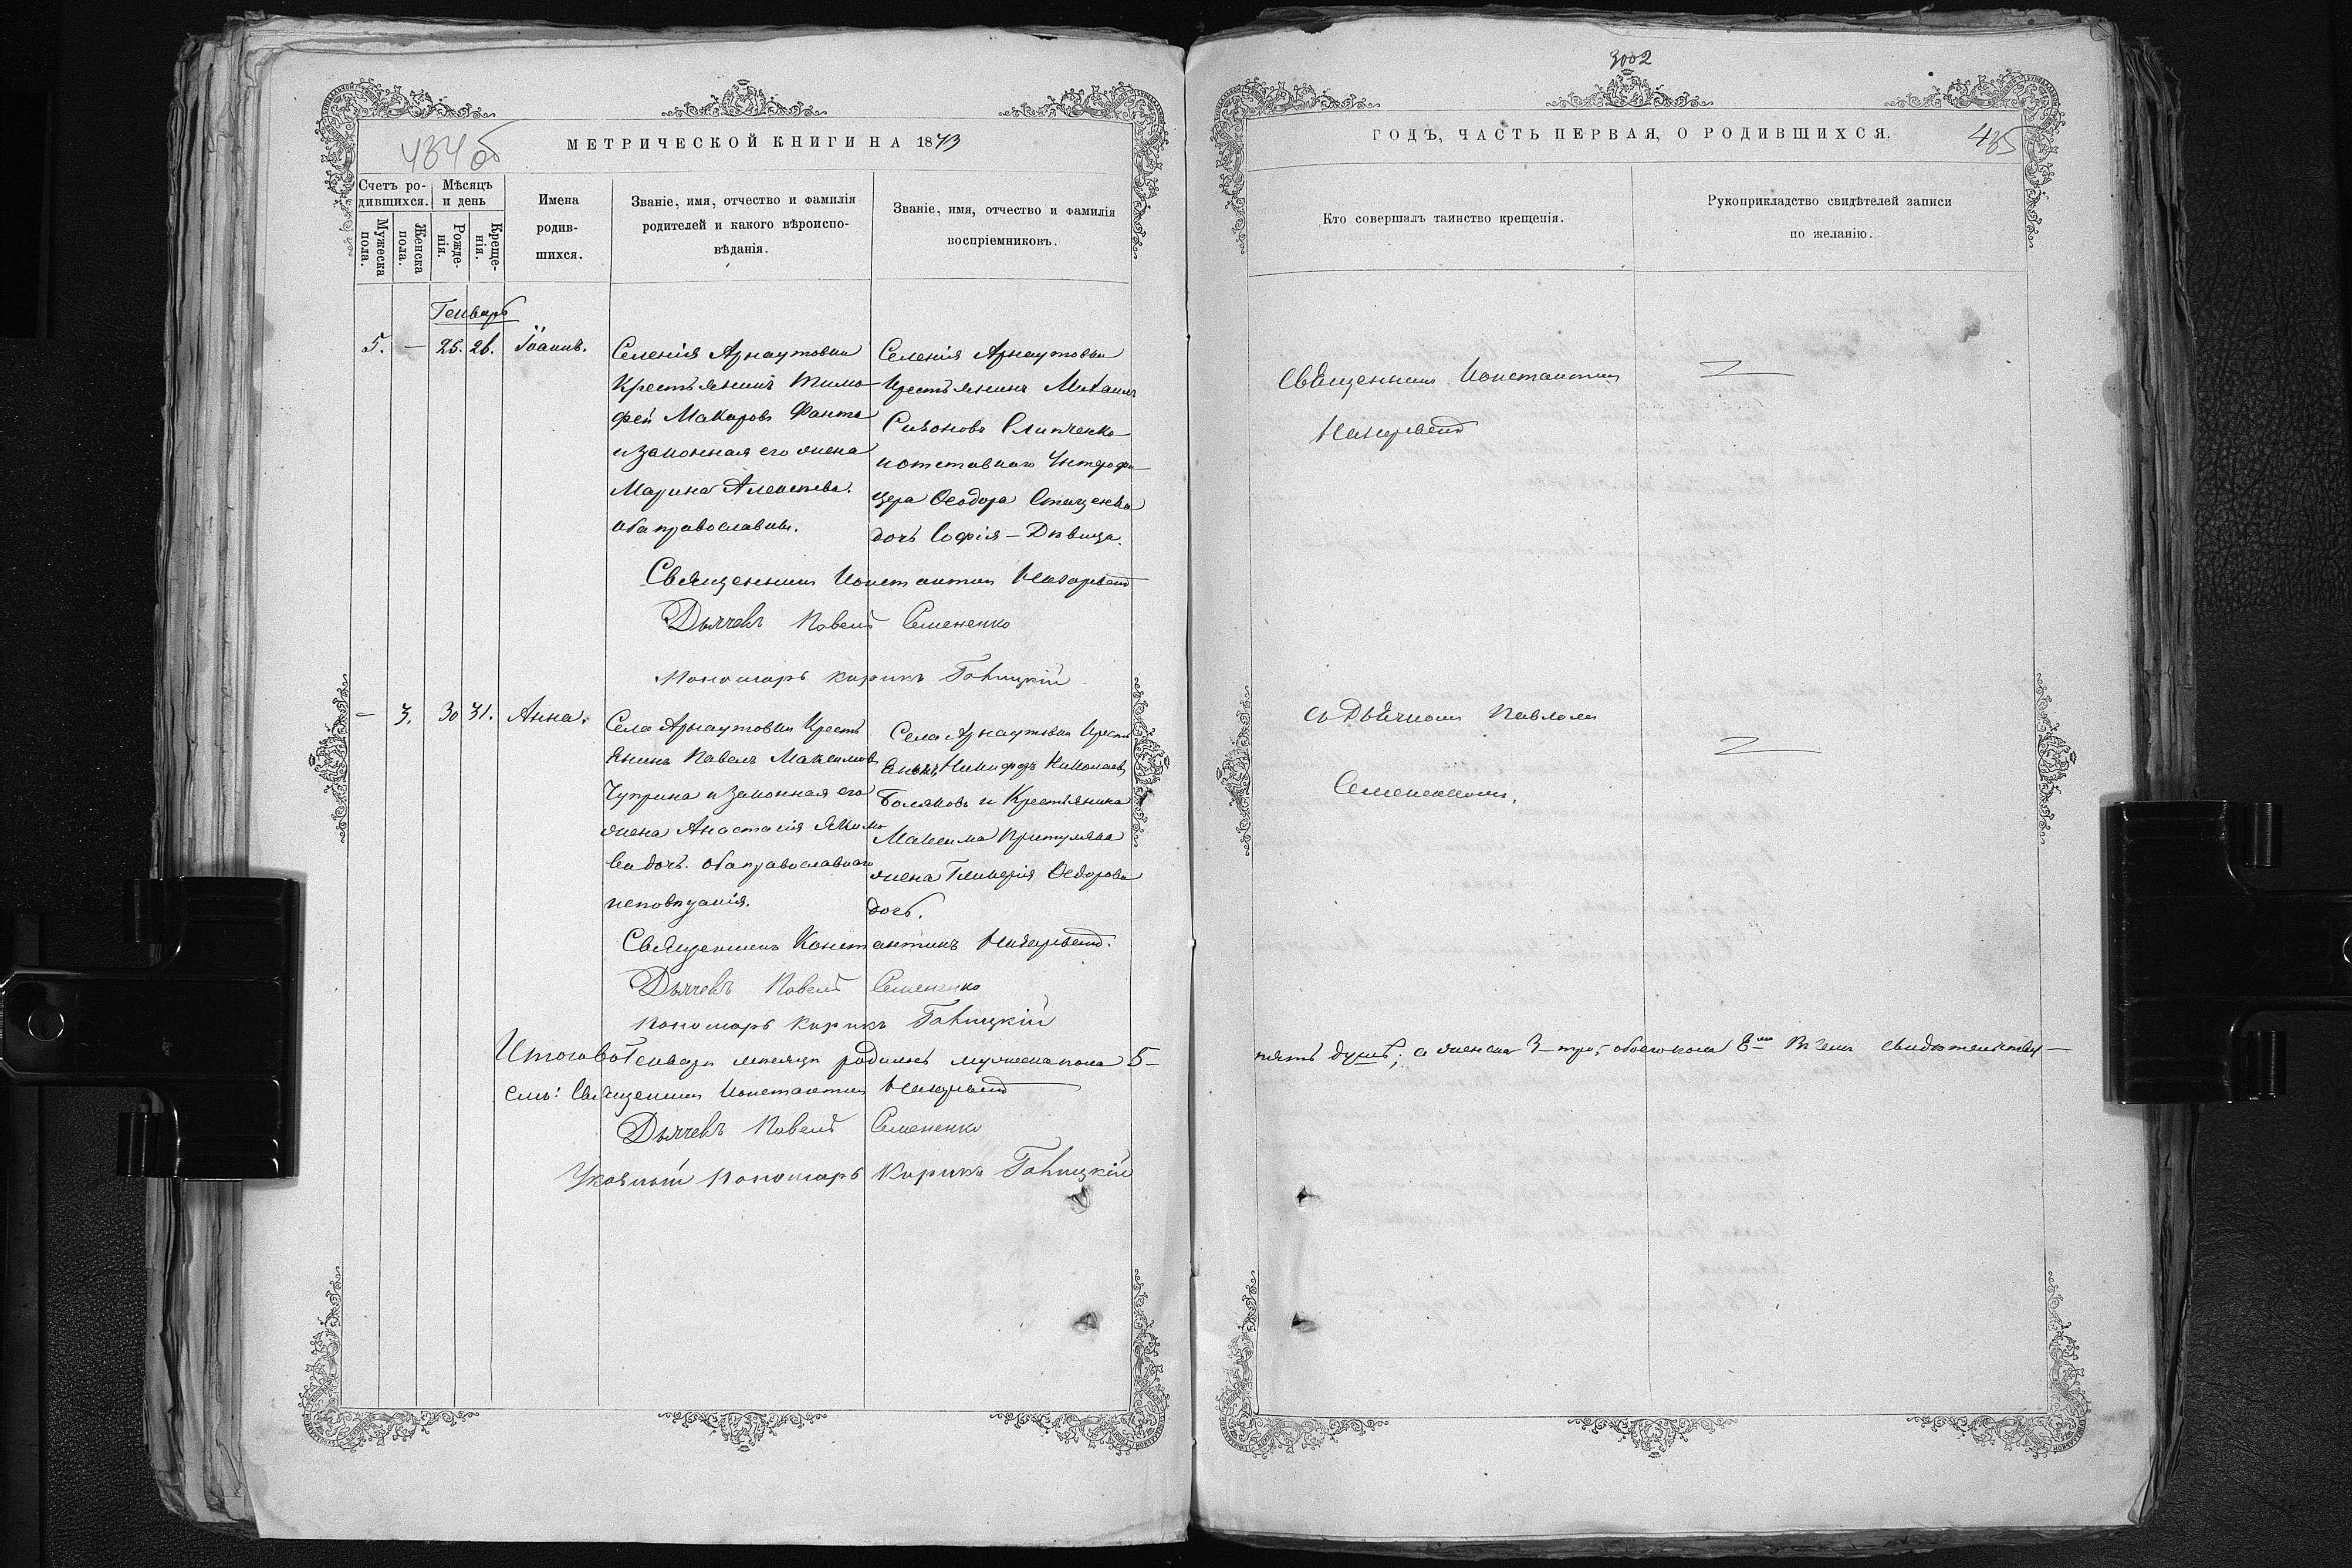 434 об
МЕТРИЧЕСКОЙ КНИГИ НА 1873
Счетъ ро-
дившихся.
Мѣсяцъ
и день
Мужеска
пола.
Женска
пола.
Рожде-
нія.
Креще-
нія.
Имена
родив-
шихся.
Званіе, имя, отчество и фамилія
родителей и какого вѣроиспо-
вѣданія.
Званіе, имя, отчество и фамилія
воспріемниковъ.
Генварь
5. — 25. 26. Іоаннъ.
Селенія Арнаутовки
Крестьянинъ Тимо-
фей Макаровъ Фанта
и законная его жена
Марина Алексѣева.
оба православны.
Селенія Арнаутовки
Крестьянинъ Михаилъ
Слипченко
и отставнаго Унтерофи-
цера Ѳеодора Стеценка
дочь Софія — Дѣвица.
Священникъ Константинъ
Дьячекъ Павелъ Семененко
Пономарь Кирикъ
— 3. 30 31. Анна.
Села Арнаутовки Кресть
янинъ Павелъ Максимов
Чуприна и законная его
жена Анастасія Якимо
ва дочь. оба православнаго
исповѣданія.
Села Арнаутовки Кресть
янинъ Никифоръ Николаев
и Крестьянина
Максима Притуляка
жена Гликерія Ѳедорова
дочь.
Священникъ Константинъ
Дьячекъ Павелъ Семененко
Пономарь Кирикъ
Итого въ Генварѣ мѣсяцѣ родилось мужеска пола 5 —
емъ: Священникъ Константинъ
Дьячекъ Павелъ Семененко
Указный Пономарь Кирикъ
3002
ГОДЪ, ЧАСТЬ ПЕРВАЯ, О РОДИВШИХСЯ.
435
Кто совершалъ таинство крещенія.
Рукоприкладство свидѣтелей записи
по желанію.
Священникъ Константинъ
съ Дьячкомъ Павломъ
Семененкомъ.
пять душъ; а женска 3 — три, обоего пола 8 — В чемъ свидѣтельству —